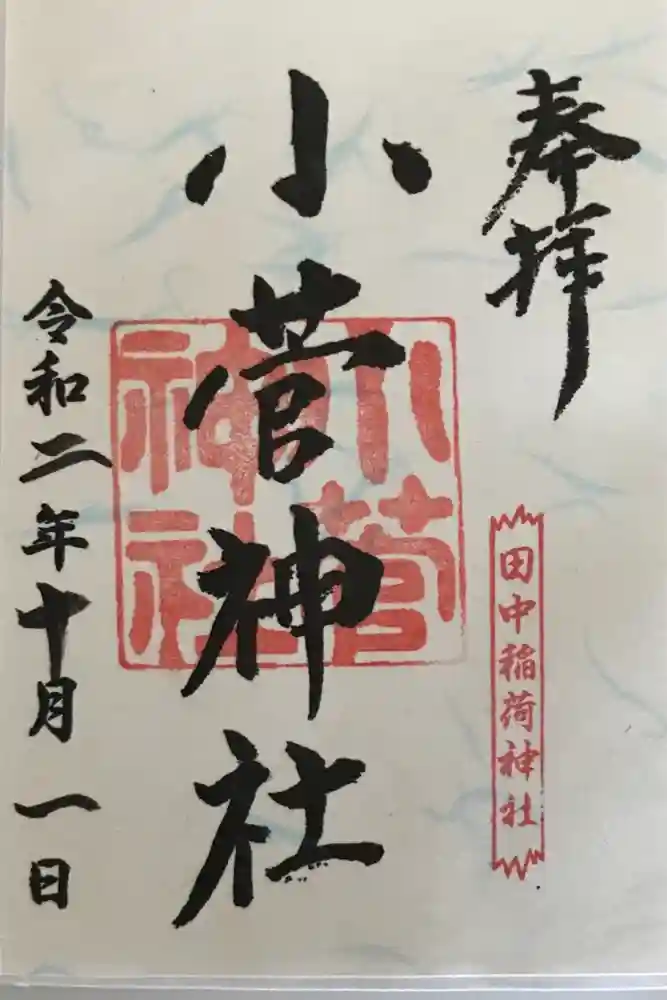 奉拝
田中稲荷神社
小菅神社
小菅
神社
令和二年十月一日